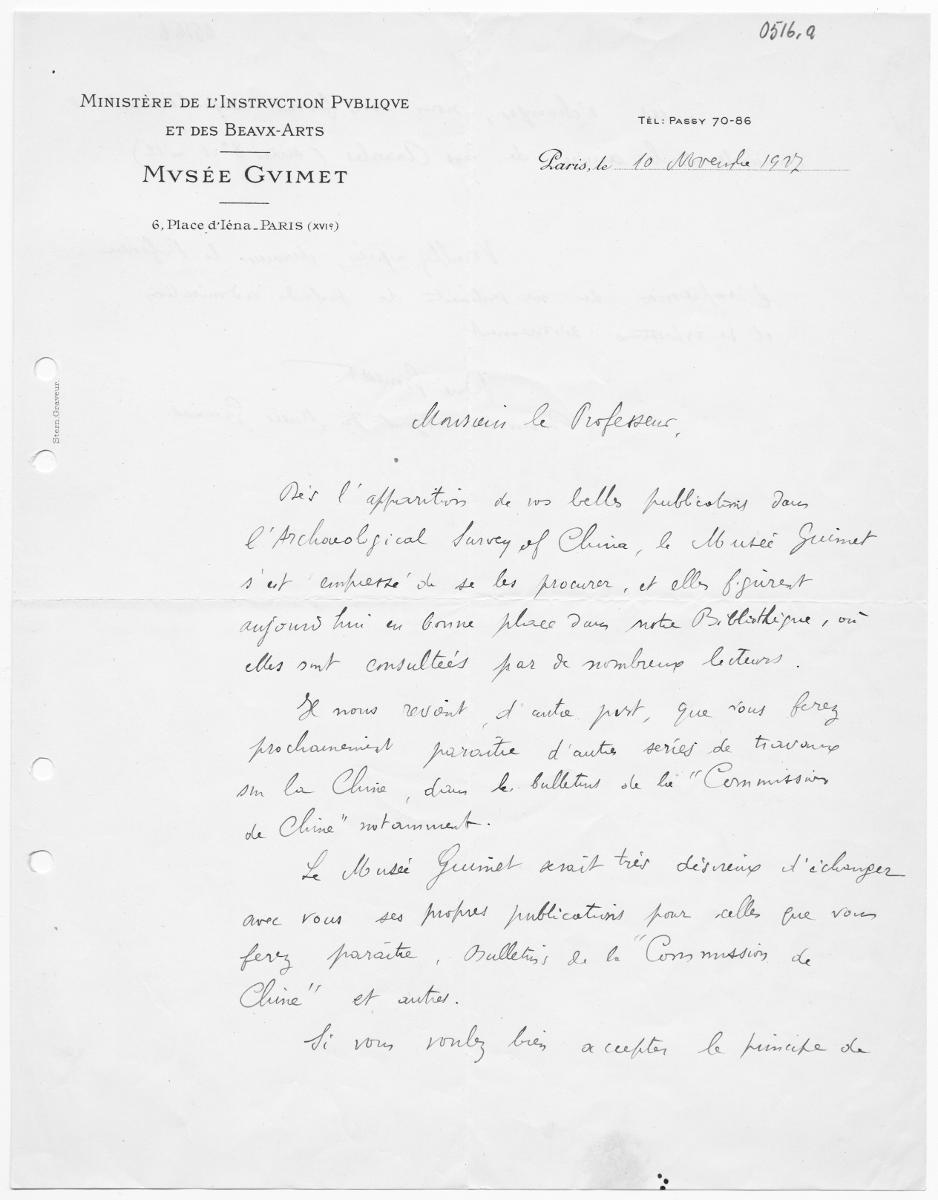 0516.a
MINISTÈRE DE L'INSTRVCTION PVBLIQVE
ET DES BEAVX-ARTS
MVSÉE GVIMET
6, Place d'Iéna_PARIS (XVIe)
TÉL: PASSY 70-86
Paris, le 10 Novembre 1927
Stern.Graveur.
Monsieur le Professeur,
Dès l'apparition de vos belles publications dans
l'Archaeological Survey of China, le Musée Guimet
s'est empressé de se les procurer, et elles figurent
aujourd'hui en bonne place dans notre Bibliothèque, où
elles sont consultées par de nombreux lecteurs.
Il nous revient, d'autre part, que vous ferez
prochainement paraître d'autres séries de travaux
sur la Chine, dans les bulletins de la "Commission
de Chine" notamment.
Le Musée Guimet serait très désireux d'échanger
avec vous ses propres publications pour celles que vous
ferez paraître, Bulletins de la "Commission de
Chine" et autres.
Si vous voulez bien accepter le principe de